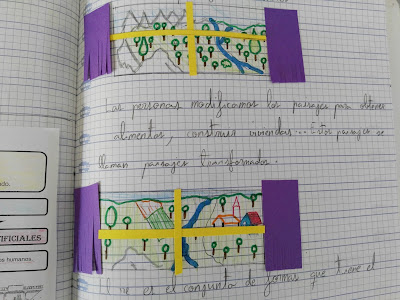 Las personas modificamos los paisajes para obtener
alimentos, construir viviendas... Estos paisajes se
llaman paisajes transformados.
es el conjunto de formas que tiene el
ado.
IFICIALES
s humanos.